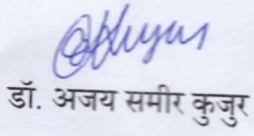 डॉ. अजय समीर कुजुर